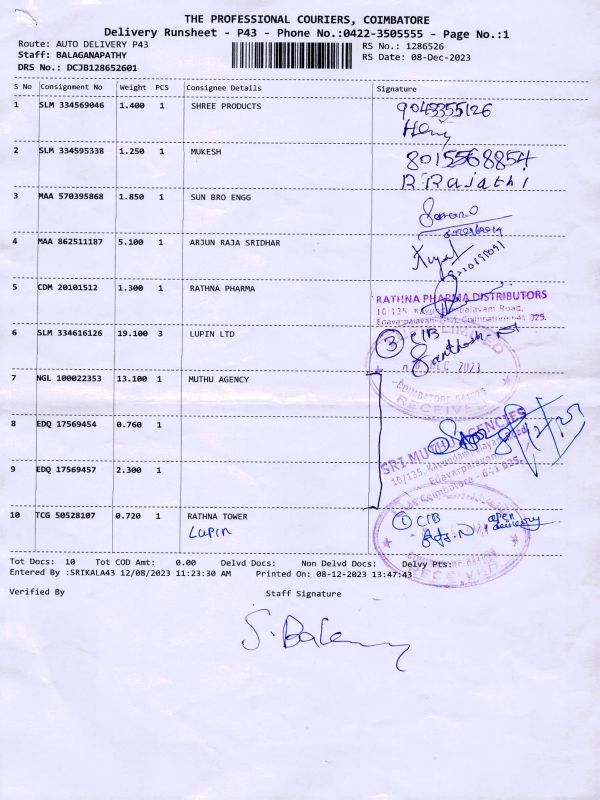 THE PROFESSIONAL COURIERS, COIMBATORE
Delivery Runsheet - P43 - Phone No.:0422-3505555 - Page No.:1
Route: AUTO DELIVERY P43
RS No.: 1286526
Staff: BALAGANAPATHY
RS Date: 08-Dec-2023
DRS No.: DCJB128652601
S No Consignment No Weight PCS Consignee Details Signature
1 SLM 334569046 1.400 1 SHREE PRODUCTS 9043355126
2 SLM 334595338 1.250 1 MUKESH 8015568854
R Rajathi
3 MAA 570395868 1.850 1 SUN BRO ENGG
4 MAA 862511187 5.100 1 ARJUN RAJA SRIDHAR
5 CDM 20101512 1.300 1 RATHNA PHARMA
RATHNA PHARMA DISTRIBUTORS
10/135, Kavundampalayam Road,
Edayarpalayam, Coimbatore-641 025.
6 SLM 614616126 19.100 3 LUPIN LTD 3 CIB
Santhosh
DEC 2023
COIMBATORE-641025
RECEIVED
7 NGL 100022353 13.100 1 MUTHU AGENCY
8 EDQ 17569454 0.760 1
SRI MUTHU AGENCIES
10/135, Kavundampalayam Road,
Edayarpalayam,
Coimbatore - 641 025.
9 EDQ 17569457 2.300 1
10 TCG 50528107 0.720 1 RATHNA TOWER 1 CIB open delivery
Lupin
COIMBATORE-641025
RECEIVED
Tot Docs: 10 Tot COD Amt: 0.00 Delvd Docs: Non Delvd Docs: Delvy Pts:
Entered By :SRIKALA43 12/08/2023 11:23:30 AM Printed On: 08-12-2023 13:47:43
Verified By Staff Signature